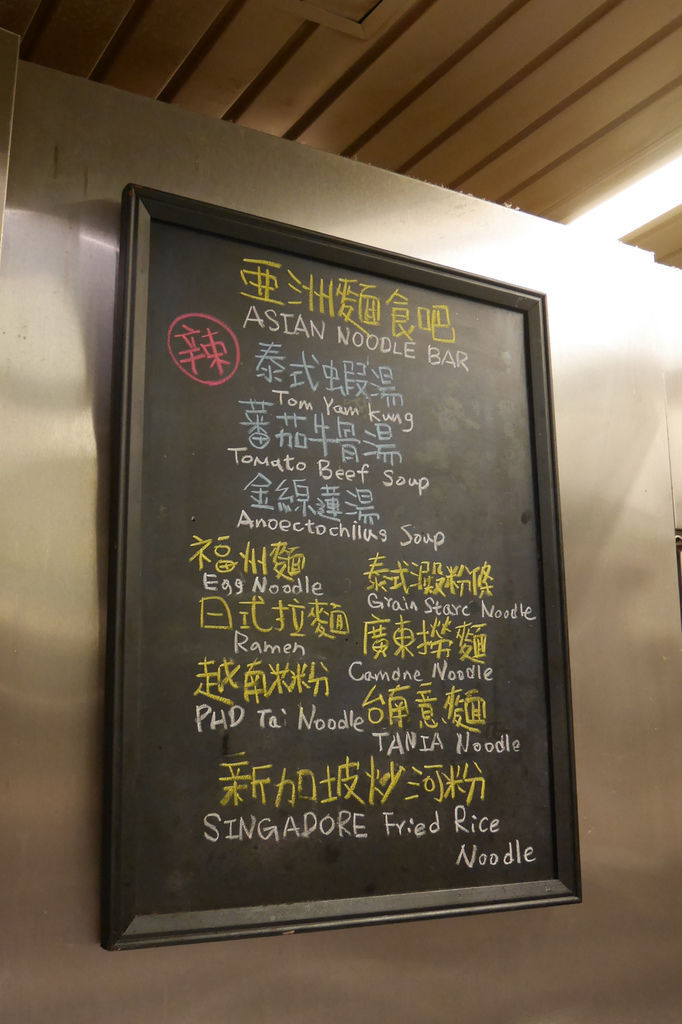 亜洲麵食吧
ASIAN NOODLE BAR
辣
泰式蝦湯
Tom Yam Kung
蕃茄牛骨湯
Tomato Beef Soup
金線蓮湯
Anoectochilus Soup
福州麵
Egg Noodle
泰式澱粉條
Grain Starc Noodle
日式拉麵
Ramen
廣東撈麵
Camdne Noodle
越南米粉
PHD Tai Noodle
台南意麵
TANIA Noodle
新加坡炒河粉
SINGADORE Fried Rice
Noodle